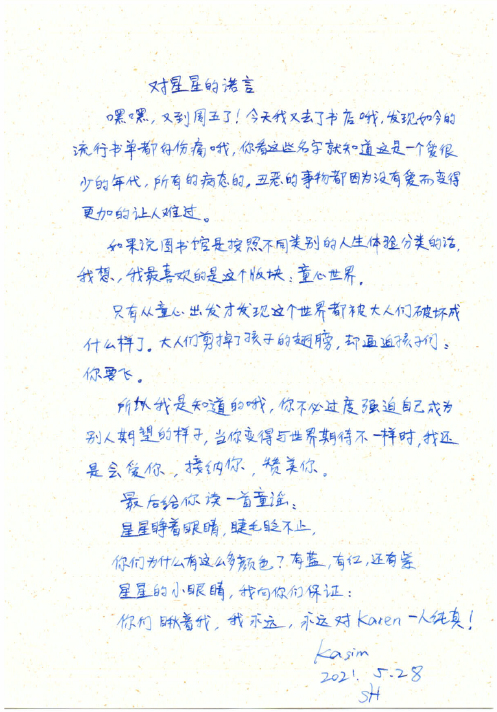 对星星的诺言
嘿嘿，又到周五了！今天我又去了书店哦，发现如今的
流行书单都好伤痛哦，你看这些名字就知道这是一个爱很
少的年代，所有的病态的，丑恶的事物都因为没有爱而变得
更加的让人难过。
如果说图书馆是按照不同类别的人生体验分类的话，
我想，我最喜欢的是这个版块：童心世界。
只有从童心出发才发现这个世界都被大人们破坏成
什么样了。大人们剪掉了孩子的翅膀，却逼迫孩子们：
你要飞。
所以我是知道的哦，你不必过度强迫自己成为
别人期望的样子，当你变得与世界期待不一样时，我还
是会爱你，接纳你，赞美你。
最后给你读一首童谣：
星星睁着眼睛，睫毛眨不止，
你们为什么有这么多颜色？有蓝，有红，还有紫
星星的小眼睛，我向你们保证：
你们瞅着我，我永远，永远对Karen一人纯真！
Kasim
2021. 5.28
SH